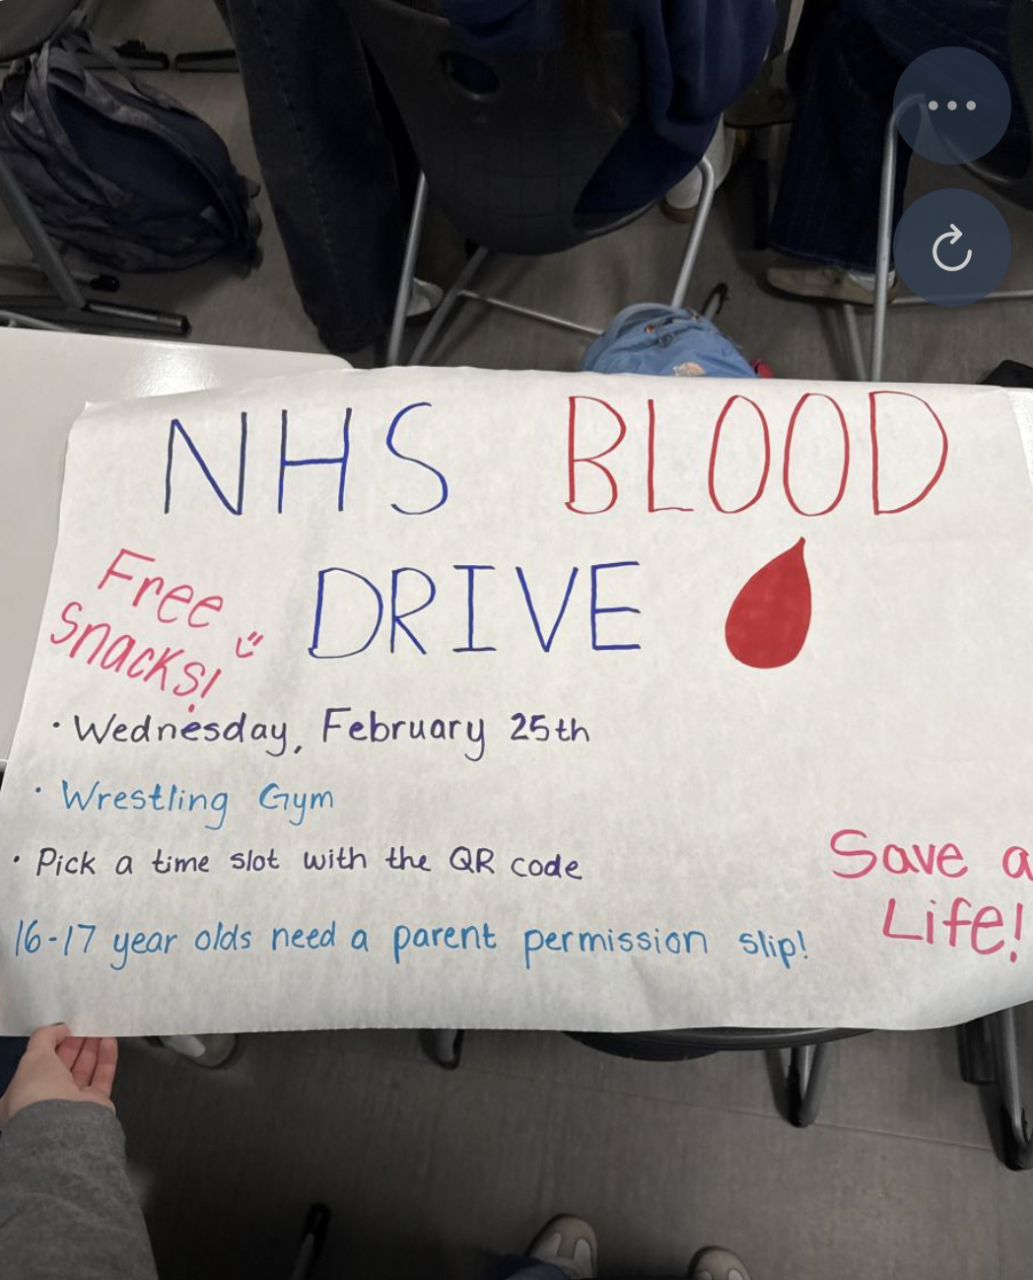 NHS BLOOD
DRIVE
Free
Snacks!
• Wednesday, February 25th
• Wrestling Gym
• Pick a time slot with the QR code
16-17 year olds need a parent permission slip!
Save a
Life!